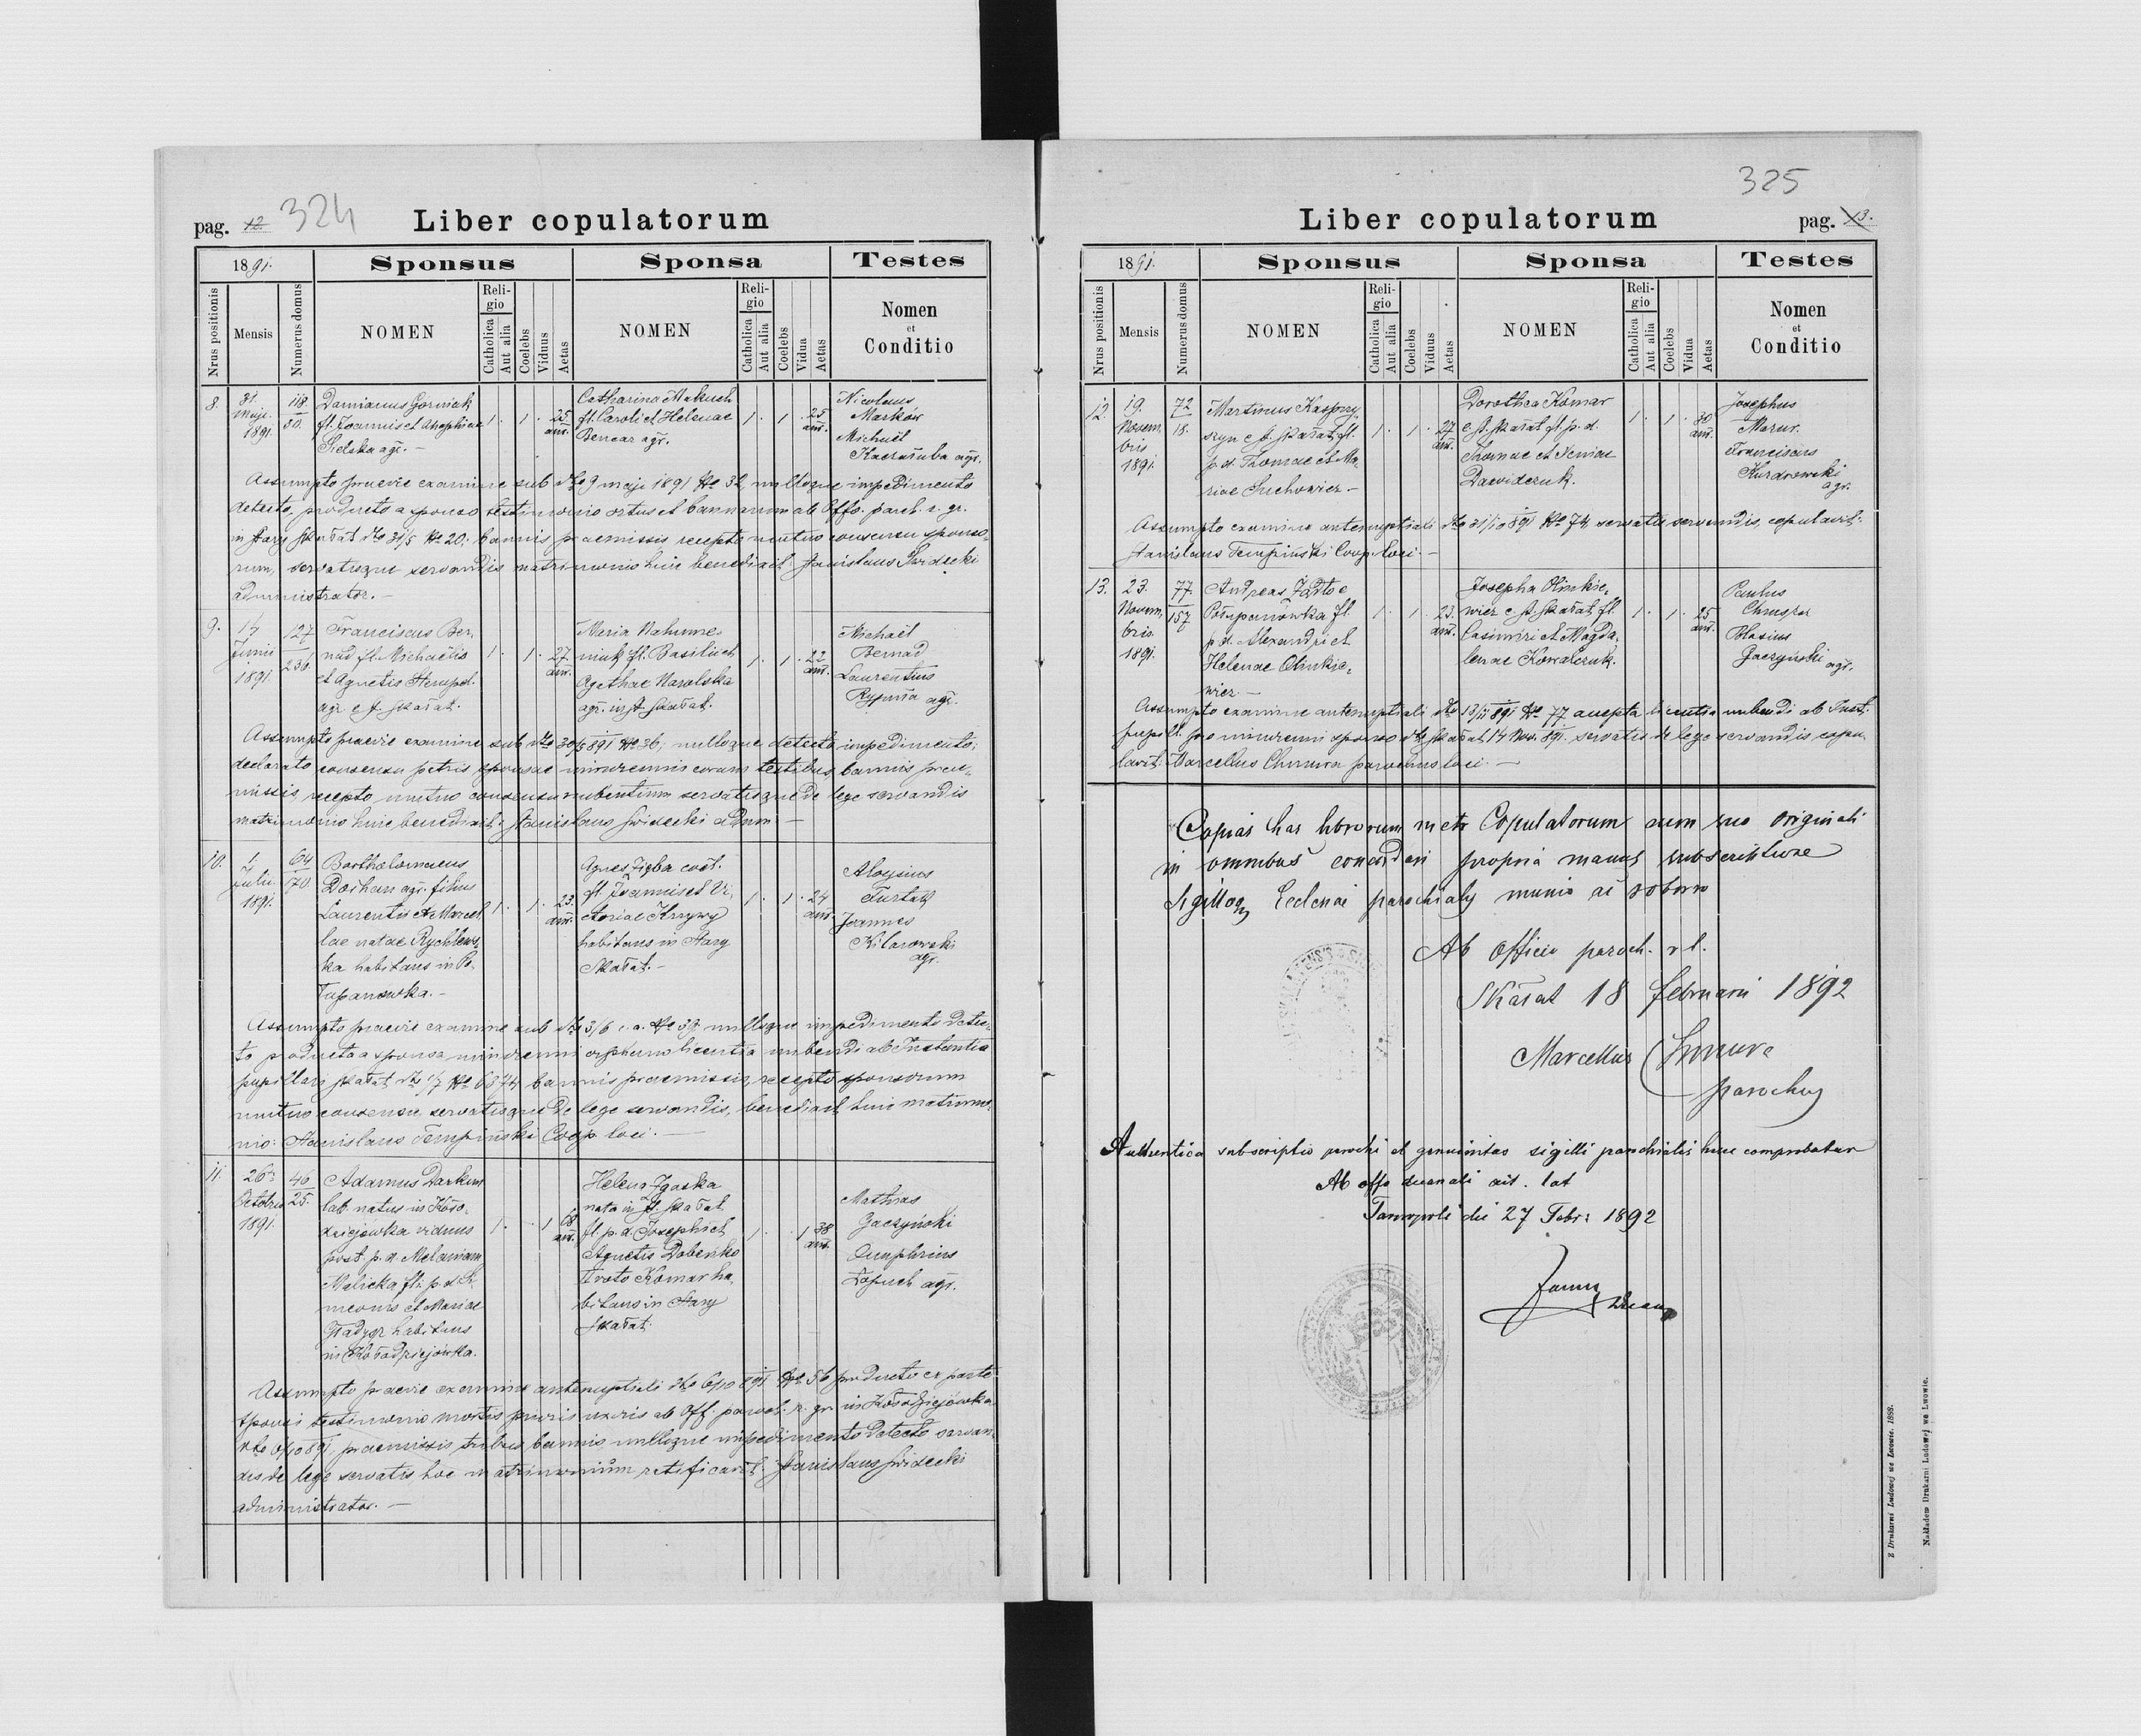 pag. 12. 324
Liber copulatorum
1891.
Sponsus
Sponsa
Testes
Nrus positionis
Mensis
Numerus domus
NOMEN
Religio
Catholica
Aut alia
Coelebs
Viduus
Aetas
NOMEN
Religio
Catholica
Aut alia
Coelebs
Vidua
Aetas
Nomen
et
Conditio
8.
31.
Maji
1891
118.
80.
Damianus Górniak
fl. Joannis et
Sielska agr. –
1.
1.
25
ann.
Catharina Makuch
fl. Caroli et Helenae
Bencar agr.
1.
1.
25
ann.
Nicolaus
Marków
Michael
Kaczałuba agr.
Assumpto praevie examine sub dto 9 maji 1891 No 32, nulloque impedimento
detecto, producto a sponso testimonio ortus et bannorum ab Offo. paroch. r. gr.
in Stary Skałat dto 31/5 No 20; bannis praemissis recepto mutuo consensu sponso-
rum, servatisque servandis matrimonio huic benedixit Stanislaus Świdecki
administrator. –
9.
14
Junii
1891
127
236.
Franciscus Ber-
nad fl. Michaelis
et Agnetis Hempel.
agr. e St. Skałat.
1.
1.
27
ann.
Maria Nahumne
niuk fl. Basilii et
Agathae Narolska
agr. in St. Skałat.
1.
1.
22
ann.
Michael
Bernad
Laurentius
Rypina agr.
Assumpto praevie examine sub dto 30/5 891 No 36, nulloque detecto impedimento;
declarato consensu patris sponsae minorennis coram testibus bannis prae-
missis, recepto mutuo consensu nubentium servatisque de lege servandis
matrimonio huic benedixit: Stanislaus Świdecki admin –
10.
1.
Julii
1891.
64
170.
Bartholomaeus
Dochan agr. filius
Laurentii et Marcel
lae natae Rychlews-
ka habitans in Po-
łupanówka. –
1.
1.
23.
ann.
Agnes Zięba coel.
fl. Joannis et Vi-
ctoriae Krzywy
habitans in Stary
Skałat. –
1.
1.
24
ann.
Aloysius
Furtak
Joannes
Kilarowski
agr.
Assumpto praevie examine sub dto 3/6 c. a. No 39 nulloque impedimento detec-
to producta a sponsa minorenni orphana licentia nubendi ab Instantia
pupillari Skałat dto 1/7 No 6374 bannis praemissis, recepto sponsorum
mutuo consensu, servatisque de lege servandis, benedixit huic matrimo-
nio: Stanislaus Tempiński Coop. loci. –
11.
26
Octobris
1891.
46
25.
Adamus Darkun
lab natus in Koło-
dziejówka viduus
post p. d. Melaniam
Malicka fl. p. d. Si
meonis et Mariae
Gładysz habitans
in Kołodziejówka.
1.
1
68
ann.
Helena Zgaska
nata in St. Skałat
fl. p. d. Josephi et
Agnetis Dobeńko
Komar ha-
bitans in Stary
Skałat.
1.
1
38
ann.
Mathias
Zaczyński
Onuphrius
Łopuch agr.
Assumpto praevie examine antenuptiali dto 6/10 891 No 56 producto ex parte
sponsi testimonio mortis prioris uxoris ab Off. paroch. r. gr. in Kołodziejówka
dto 6/10 891, praemissis tribus bannis nulloque impedimento detecto servan-
dis de lege servatis, hoc matrimonium ratificavit Stanislaus Świdecki
administrator. –
325
Liber copulatorum
pag. 13.
1891.
Sponsus
Sponsa
Testes
Nrus positionis
Mensis
Numerus domus
NOMEN
Religio
Catholica
Aut alia
Coelebs
Viduus
Aetas
NOMEN
Religio
Catholica
Aut alia
Coelebs
Vidua
Aetas
Nomen
et
Conditio
12
19.
Novem-
bris
1891.
72
18.
Martinus Kasprzy
szyn e St. Skałat, fl.
p. d. Thomae et Ma-
riae Suchowicz –
1.
1.
27
ann.
Dorothea Komar
e St. Skałat fl. p. d.
Thomae et Xeniae
Dawidczuk.
1.
1.
30
ann.
Josephus
Mazur.
Franciscus
Kurdrowski
agr.
Assumpto examine antenuptiali dto 31/10 891 No 74 servatis servandis, copulavit:
Stanislaus Tempiński Coop. loci. –
13.
23.
Novem-
bris
1891.
77.
157
Andreas Żołto e
Połupanówka fl.
p. d. Alexandri et
Helenae Olinkie-
wicz. –
1.
1.
23.
ann.
Josepha Olinkie-
wicz e St. Skałat, fl.
Casimiri et Magda-
lenae Kowalczuk.
1.
1.
25
ann.
Paulus
Chruszcz
Blasius
Zaczyński agr.
Assumpto examine antenuptiali dto 13/11 891 No 77 accepta licentia nubendi ab Inst.
pupill. pro minorenni sponso dto Skałat 14 Nov. 891. servatis de lege servandis copu-
lavit Marcellus Chmura parochus loci. –
Copias has librorum metr Copulatorum cum suo originali
in omnibus concordari propria manus subscriptione
Sigilloq Ecclesiae parochialis munio ac roboro
Ab officio paroch. r l.
Skałat 18 februarii 1892
Marcellus Chmura
parochus
Authentica subscriptio parochi et genuinitas sigilli parochialis hisce comprobatur
Ab offo decanali rit. lat
Tarnopoli die 27 Febr: 1892
Z Drukarni Ludowej we Lwowie. 1888.
Nakładem Drukarni Ludowej we Lwowie.